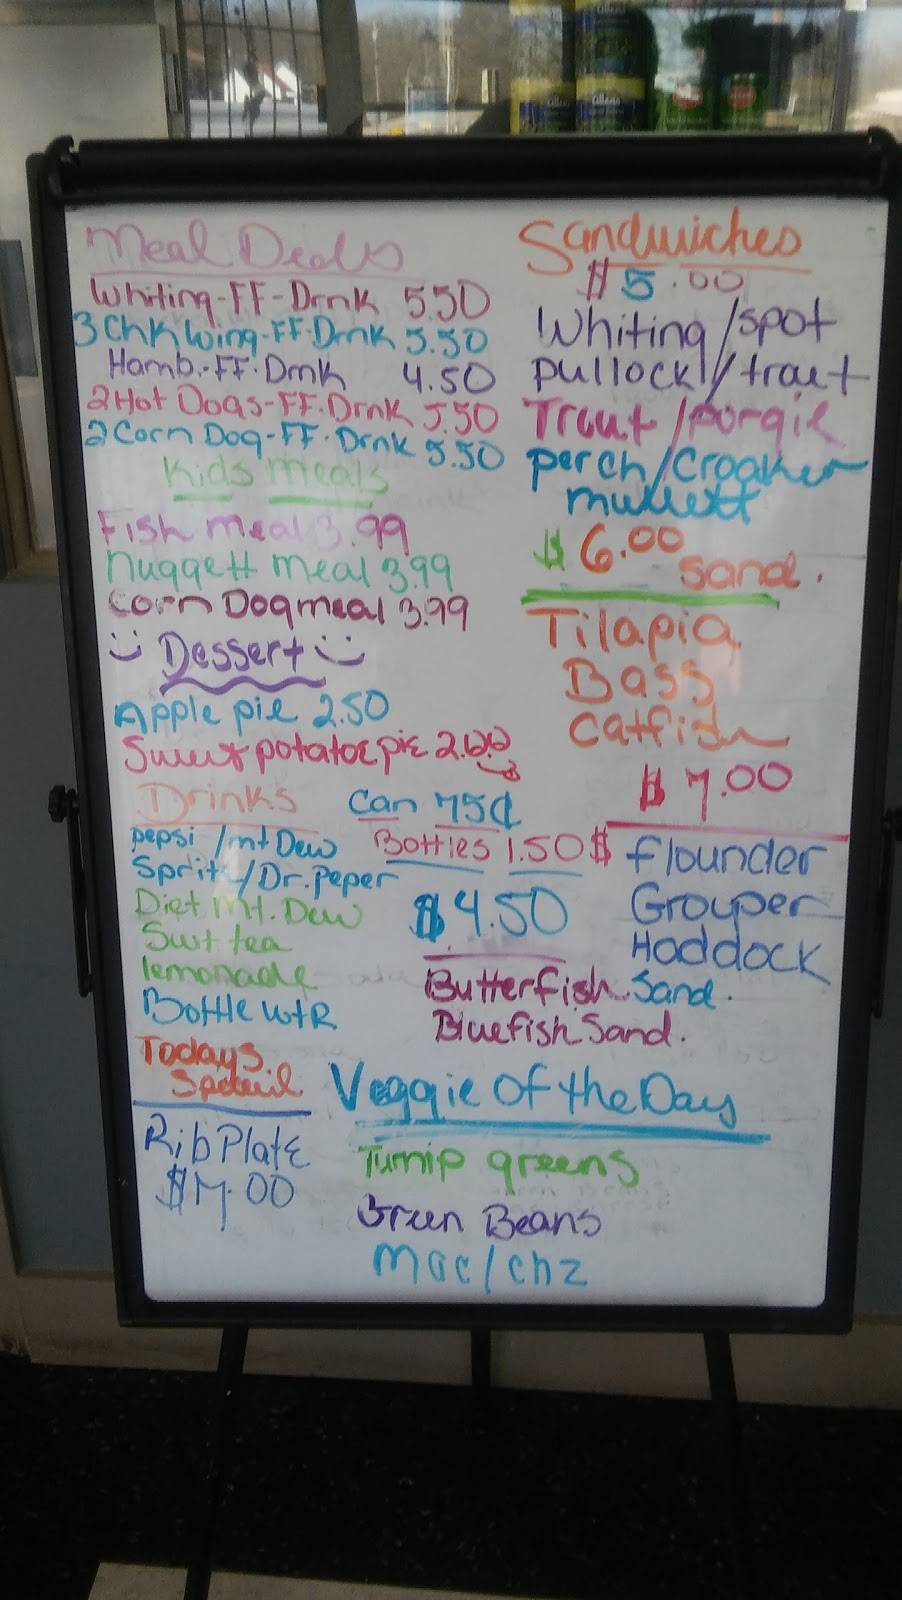 Meal Deals
Whiting-FF-Drnk 5.50
3 Chk Wing-FF-Drnk 5.50
Hamb.-FF-Drnk 4.50
2 Hot Dogs-FF-Drnk 5.50
2 Corn Dog-FF-Drnk 5.50
Kids Meals
Fish meal 3.99
Nuggett meal 3.99
Corn Dog meal 3.99
Dessert
Apple pie 2.50
Sweet potatoe pie 2.00
Drinks
Can 75¢
Bottles 1.50
pepsi /mt Dew
Sprite/Dr. peper
Diet Mt. Dew
Swt tea
lemonade
Bottle wtR
Todays
Special
Rib Plate
$7.00
Sandwiches
$5.00
Whiting/spot
pullock//trout
Trout/porgie
perch/Croaker
mullett
$6.00 sand.
Tilapia
Bass
Catfish
$7.00
$ flounder
Grouper
Haddock
$4.50
Butterfish Sand.
Bluefish Sand.
Veggie Of the Day
Turnip greens
Green Beans
Mac/chz